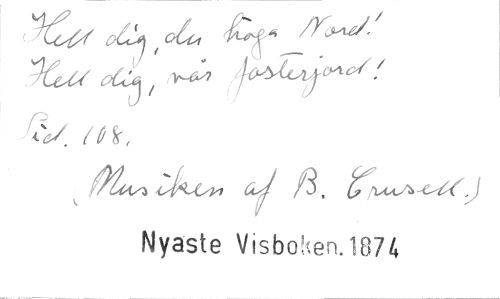 Hell dig, du höga Nord!
Hell dig, vår fosterjord!
Sid. 108.
(Musiken af B. Crusell.)
Nyaste Visboken. 1874